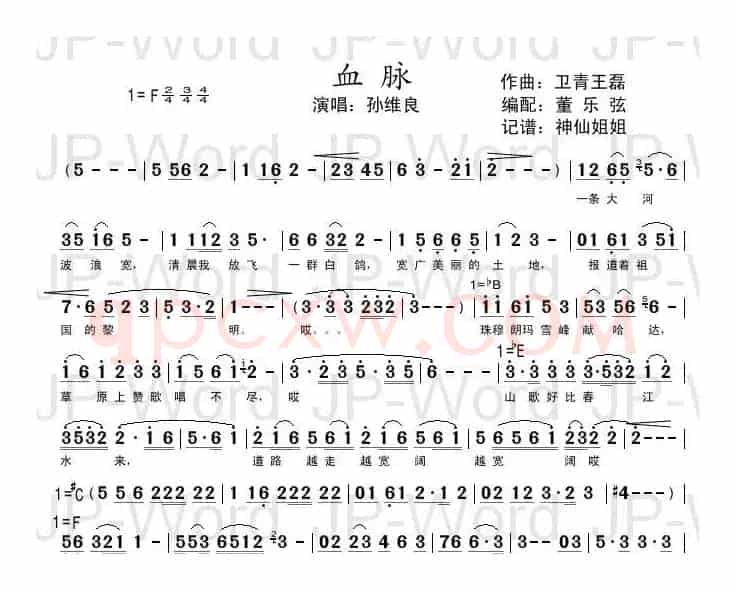 血 脉
1= F 2/4 3/4 4/4
演唱：孙维良
作曲：卫青王磊
编配：董 乐 弦
记谱：神仙姐姐
(5 - - - | 5 5 6 2 - | 1 1 6 2 - | 2 3 4 5 | 6 3 - 2 1 | 2 - - - ) | 1 2 6 5 5 · 6 |
一条 大 河
3 5 1 6 5 - | 1 1 1 2 3 5 · | 6 6 3 2 2 - | 1 5 6 6 5 | 1 2 3 - | 0 1 6 1 3 5 1 |
波 浪 宽， 清 晨我 放 飞 一 群 白 鸽， 宽 广 美 丽 的 土 地， 报 道着 祖
1=♭B
7 · 6 5 2 3 | 5 3 · 2 | 1 - - - | (3 · 3 3 2 3 2 | 3 - - - ) | 1 1 6 1 5 3 | 5 3 5 6 6 - |
国 的 黎 明， 哎。。。 珠穆 朗玛 雪 峰 献 哈 达，
1=♭E
1 6 1 2 3 3 2 | 1 5 6 1 2 · | 3 · 2 3 5 3 5 | 6 - - - | 3 · 3 3 3 3 | 3 · 5 3 2 1 2 |
草 原 上 赞 歌 唱 不 尽， 哎 山 歌 好 比 春 江
3 5 3 2 2 · 1 6 | 5 · 6 1 | 2 1 6 5 6 5 | 2 1 6 5 6 1 2 3 2 2 | 2 - - - |
水 来， 道 路 越 走 越 宽 阔 越 宽 阔 哎
1=♯C (5 5 6 2 2 2 2 2 | 1 1 6 2 2 2 2 2 | 0 1 6 1 2 · 1 2 | 0 2 1 2 3 · 2 3 | ♯4 - - - ) |
1=F
5 6 3 2 1 1 - | 5 5 3 6 5 1 2 3 - | 0 2 2 3 4 6 3 | 7 6 6 3 · | 0 2 3 4 6 3 |
JP-Word JP-Word JP-Word
qpcxw.com